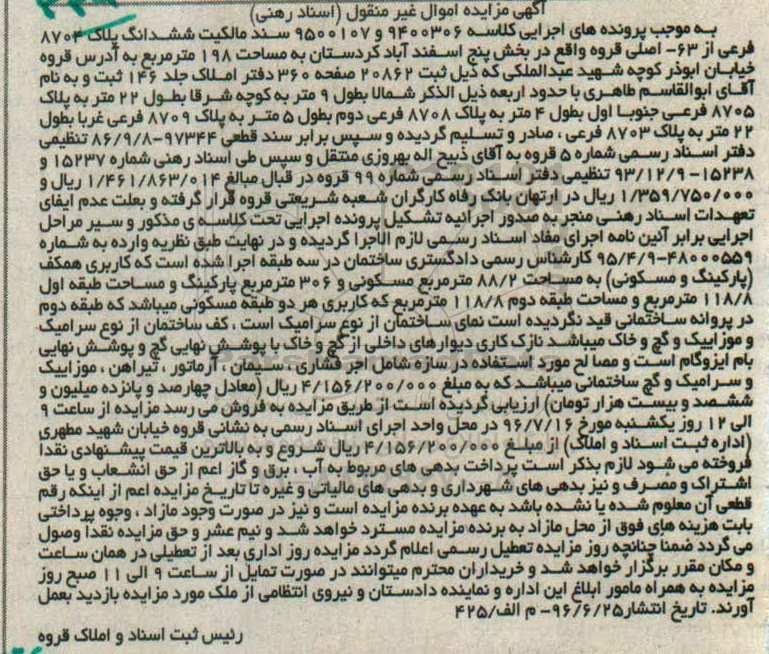 آگهی مزایده اموال غیر منقول (اسناد رهنی)
به موجب پرونده های اجرایی کلاسه ۹۴۰۰۳۰۶ و ۹۵۰۰۱۰۷ سند مالکیت ششدانگ پلاک ۸۷۰۴
فرعی از ۶۳- اصلی قروه واقع در بخش پنج اسفند آباد کردستان به مساحت ۱۹۸ مترمربع به آدرس قروه
خیابان ابوذر کوچه شهید عبدالملکی که ذیل ثبت ۲۰۸۶۲ صفحه ۳۶۰ دفتر املاک جلد ۱۴۶ ثبت و به نام
آقای ابوالقاسم طاهری با حدود اربعه ذیل الذکر شمالا بطول ۹ متر به کوچه شرقا بطول ۲۲ متر به پلاک
۸۷۰۵ فرعی جنوبا اول بطول ۴ متر به پلاک ۸۷۰۸ فرعی دوم بطول ۵ متر به پلاک ۸۷۰۹ فرعی غربا بطول
۲۲ متر به پلاک ۸۷۰۳ فرعی ، صادر و تسلیم گردیده و سپس برابر سند قطعی ۹۷۳۴۴-۸۶/۹/۸ تنظیمی
دفتر اسناد رسمی شماره ۵ قروه به آقای ذبیح اله بهروزی منتقل و سپس طی اسناد رهنی شماره ۱۵۲۳۷ و
۱۵۲۳۸-۹۳/۱۲/۹ تنظیمی دفتر اسناد رسمی شماره ۹۹ قروه در قبال مبالغ ۱/۴۶۱/۸۶۳/۰۱۴ ریال و
۱/۳۵۹/۷۵۰/۰۰۰ ریال در ارتهان بانک رفاه کارگران شعبه شریعتی قروه قرار گرفته و بعلت عدم ایفای
تعهدات اسناد رهنی منجر به صدور اجرائیه تشکیل پرونده اجرایی تحت کلاسه ی مذکور و سیر مراحل
اجرایی برابر آئین نامه اجرای مفاد اسناد رسمی لازم الاجرا گردیده و در نهایت طبق نظریه وارده به شماره
۴۸۰۰۰۵۵۹-۹۵/۴/۹ کارشناس رسمی دادگستری ساختمان در سه طبقه اجرا شده است که کاربری همکف
(پارکینگ و مسکونی) به مساحت ۸۸/۲ مترمربع مسکونی و ۳۰۶ مترمربع پارکینگ و مساحت طبقه اول
۱۱۸/۸ مترمربع و مساحت طبقه دوم ۱۱۸/۸ مترمربع که کاربری هر دو طبقه مسکونی میباشد که طبقه دوم
در پروانه ساختمانی قید نگردیده است نمای ساختمان از نوع سرامیک است ، کف ساختمان از نوع سرامیک
و موزاییک و گچ و خاک میباشد نازک کاری دیوارهای داخلی از گچ و خاک با پوشش نهایی گچ و پوشش نهایی
بام ایزوگام است و مصالح مورد استفاده در سازه شامل اجر فشاری ، سیمان ، آرماتور ، تیرآهن ، موزاییک
و سرامیک و گچ ساختمانی میباشد که به مبلغ ۴/۱۵۶/۲۰۰/۰۰۰ ریال (معادل چهارصد و پانزده میلیون و
ششصد و بیست هزار تومان) ارزیابی گردیده است از طریق مزایده به فروش می رسد مزایده از ساعت ۹
الی ۱۲ روز یکشنبه مورخ ۹۶/۷/۱۶ در محل واحد اجرای اسناد رسمی به نشانی قروه خیابان شهید مطهری
(اداره ثبت اسناد و املاک) از مبلغ ۴/۱۵۶/۲۰۰/۰۰۰ ریال شروع و به بالاترین قیمت پیشنهادی نقدا
فروخته می شود لازم بذکر است پرداخت بدهی های مربوط به آب ، برق و گاز اعم از حق انشعاب و یا حق
اشتراک و مصرف و نیز بدهی های شهرداری و بدهی های مالیاتی و غیره تا تاریخ مزایده اعم از اینکه رقم
قطعی آن معلوم شده یا نشده باشد به عهده برنده مزایده است و نیز در صورت وجود مازاد ، وجوه پرداختی
بابت هزینه های فوق از محل مازاد به برنده مزایده مسترد خواهد شد و نیم عشر و حق مزایده نقدا وصول
می گردد ضمنا چنانچه روز مزایده تعطیل رسمی اعلام گردد مزایده روز اداری بعد از تعطیلی در همان ساعت
و مکان مقرر برگزار خواهد شد و خریداران محترم میتوانند در صورت تمایل از ساعت ۹ الی ۱۱ صبح روز
مزایده به همراه مامور ابلاغ این اداره و نماینده دادستان و نیروی انتظامی از ملک مورد مزایده بازدید بعمل
آورند. تاریخ انتشار ۹۶/۶/۲۵- م الف/۴۲۵
رئیس ثبت اسناد و املاک قروه